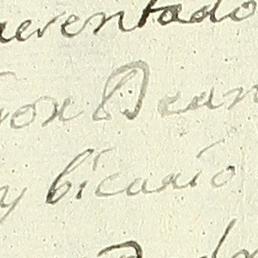 aerentado
ñor Dean
y bicario